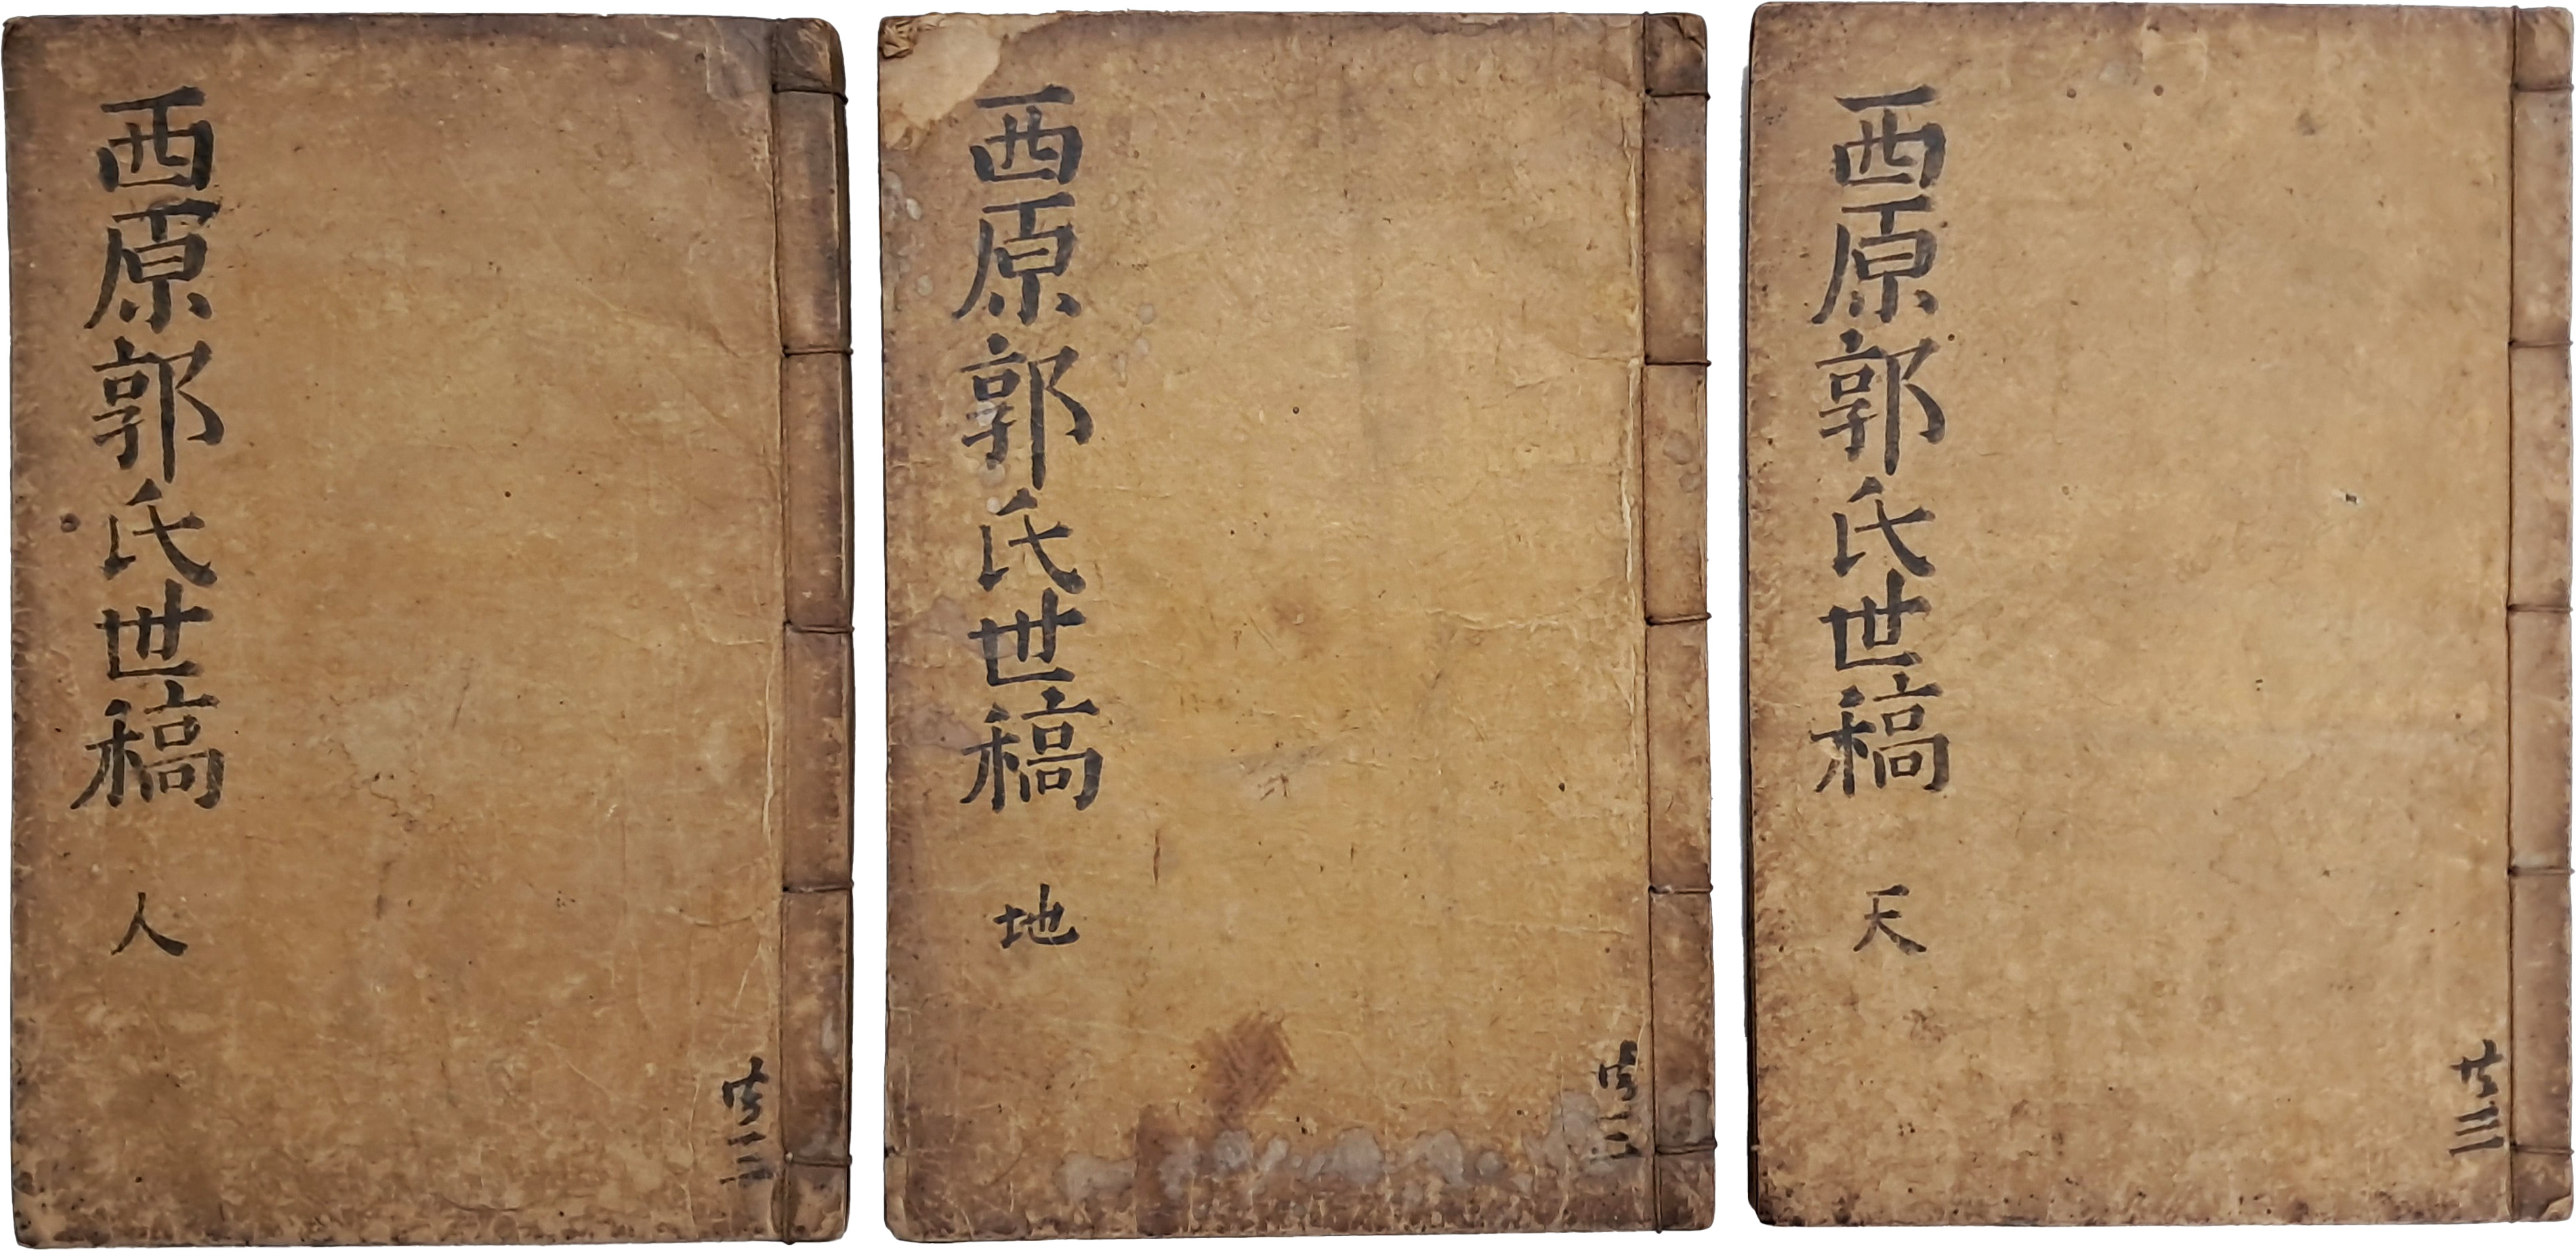 西原郭氏世稿 天
共三
西原郭氏世稿 地
共三
西原郭氏世稿 人
共三